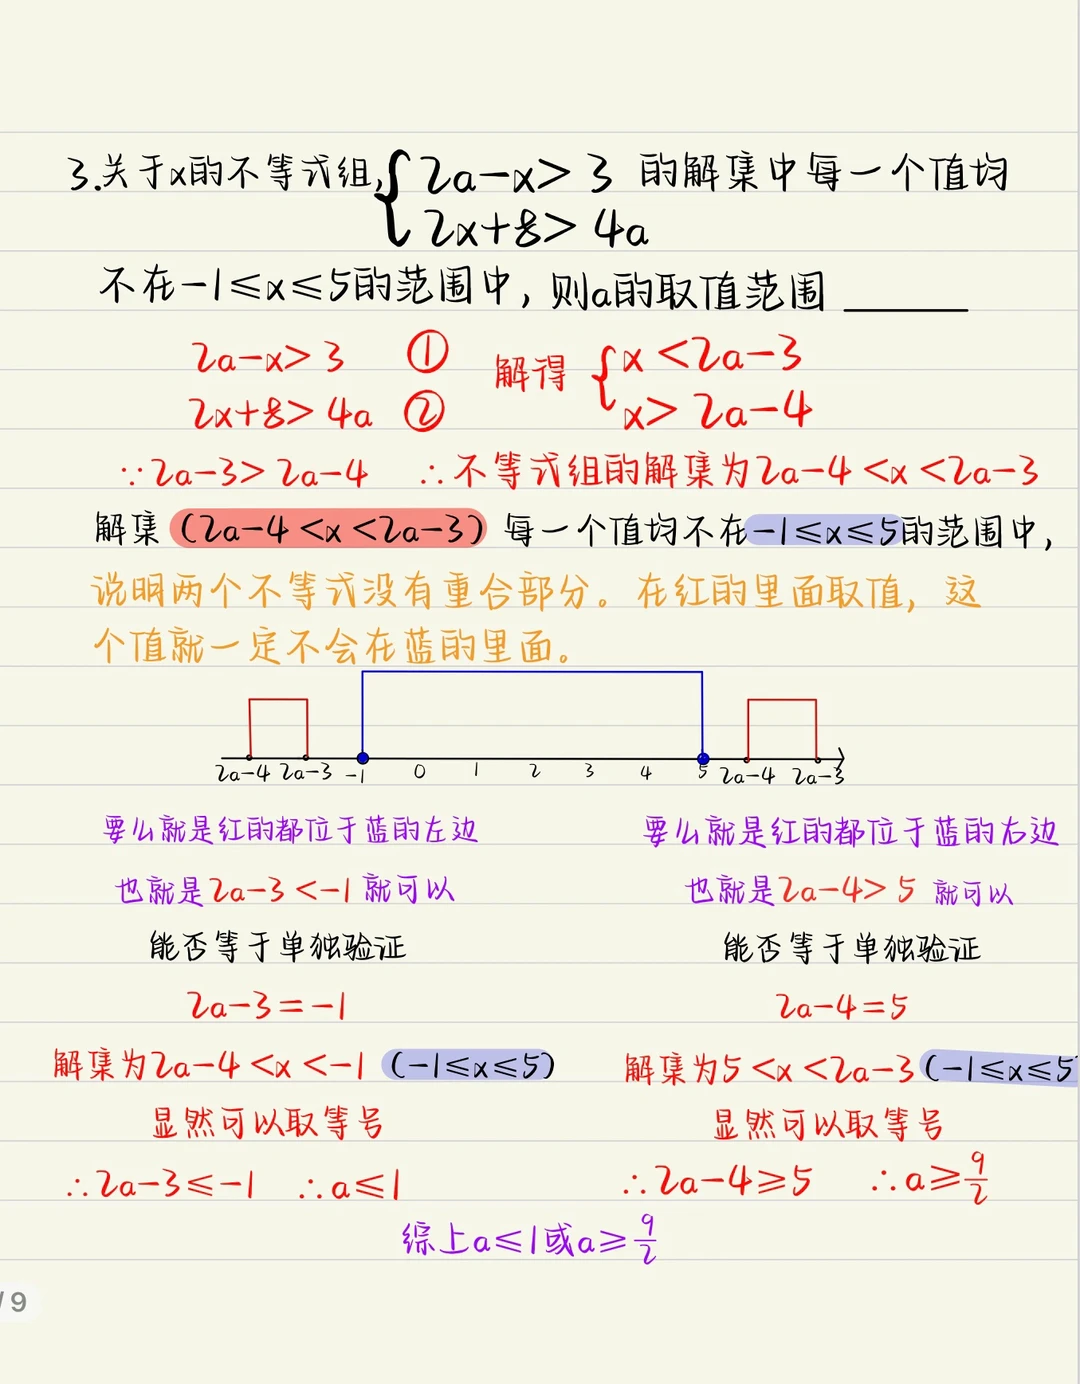 3.关于x的不等式组,{2a-x>3 的解集中每一个值均
2x+8>4a
不在-1≤x≤5的范围中,则a的取值范围______
2a-x>3 ① 解得 {x<2a-3
2x+8>4a ② x>2a-4
∵2a-3>2a-4 ∴不等式组的解集为2a-4<x<2a-3
解集(2a-4<x<2a-3)每一个值均不在-1≤x≤5的范围中,
说明两个不等式没有重合部分。在红的里面取值,这
个值就一定不会在蓝的里面。
2a-4 2a-3 -1 0 1 2 3 4 5 2a-4 2a-3
要么就是红的都位于蓝的左边 要么就是红的都位于蓝的右边
也就是2a-3<-1就可以 也就是2a-4>5 就可以
能否等于单独验证 能否等于单独验证
2a-3=-1 2a-4=5
解集为2a-4<x<-1 (-1≤x≤5) 解集为5<x<2a-3(-1≤x≤5
显然可以取等号 显然可以取等号
∴2a-3≤-1 ∴a≤1 ∴2a-4≥5 ∴a≥9/2
综上a≤1或a≥9/2
/9